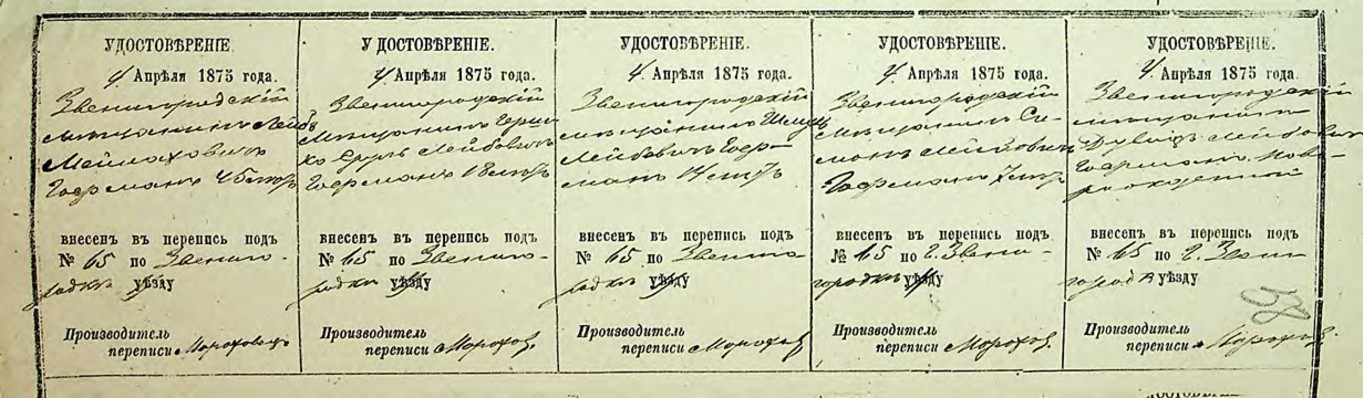 УДОСТОВѢРЕНІЕ.
4 Апрѣля 1875 года.
Звенигородскій
мѣщанинъ Лейба
Меймахович
Гофманъ 45 лѣтъ
внесенъ въ перепись подъ
№ 65 по Звениго-
родкѣ уѣзду
Производитель
переписи
У ДОСТОВѢРЕНІЕ.
4 Апрѣля 1875 года.
Звенигородскій
мѣщанинъ Герш
ко Сруль Лейбович
Гофманъ 18 лѣтъ
внесенъ въ перепись подъ
№ 65 по Звениго-
родкѣ уѣзду
Производитель
переписи
УДОСТОВѢРЕНІЕ.
4 Апрѣля 1875 года.
Звенигородскій
мѣщанинъ
Лейбовичъ Гоф-
манъ лѣтъ
внесенъ въ перепись подъ
№ 65 по Звениго-
родкѣ уѣзду
Производитель
переписи
УДОСТОВѢРЕНІЕ.
4 Апрѣля 1875 года.
Звенигородскій
мѣщанинъ Си-
монъ Лейбович
Гофманъ 7 лѣтъ
внесенъ въ перепись подъ
№ 65 по г. Звени-
городкѣ уѣзду
Производитель
переписи
УДОСТОВѢРЕНІЕ.
4 Апрѣля 1875 года
Звенигородскій
мѣщанинъ
Дувидъ Лейбович
Гофманъ Ново-
рожденный
внесенъ въ перепись подъ
№ 65 по г. Звени
городк уѣзду
Производитель
переписи